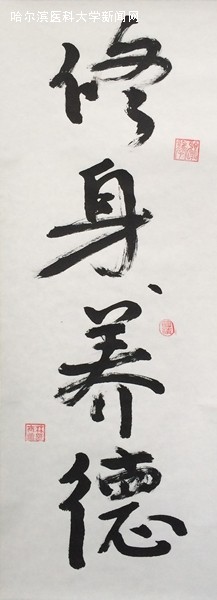 哈尔滨医科大学新闻网
修身养德